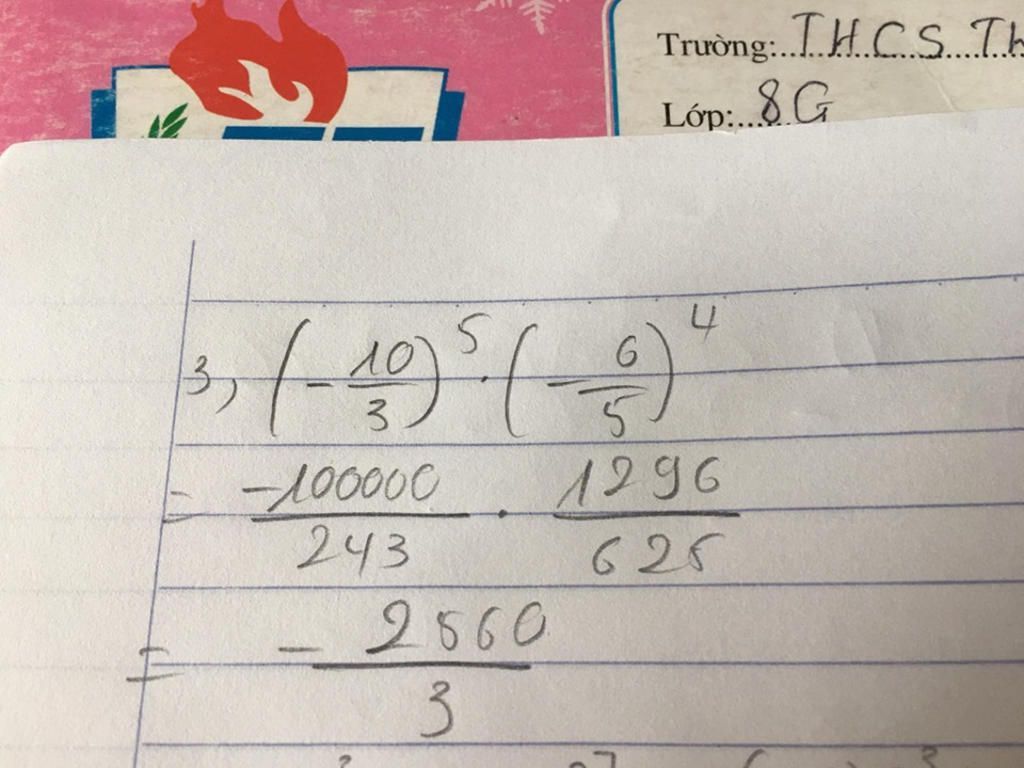 Trường:...THCS Th
Lớp:...8G
3, (-10/3)^5 . (-6/5)^4
= -100000/243 . 1296/625
= -2560/3